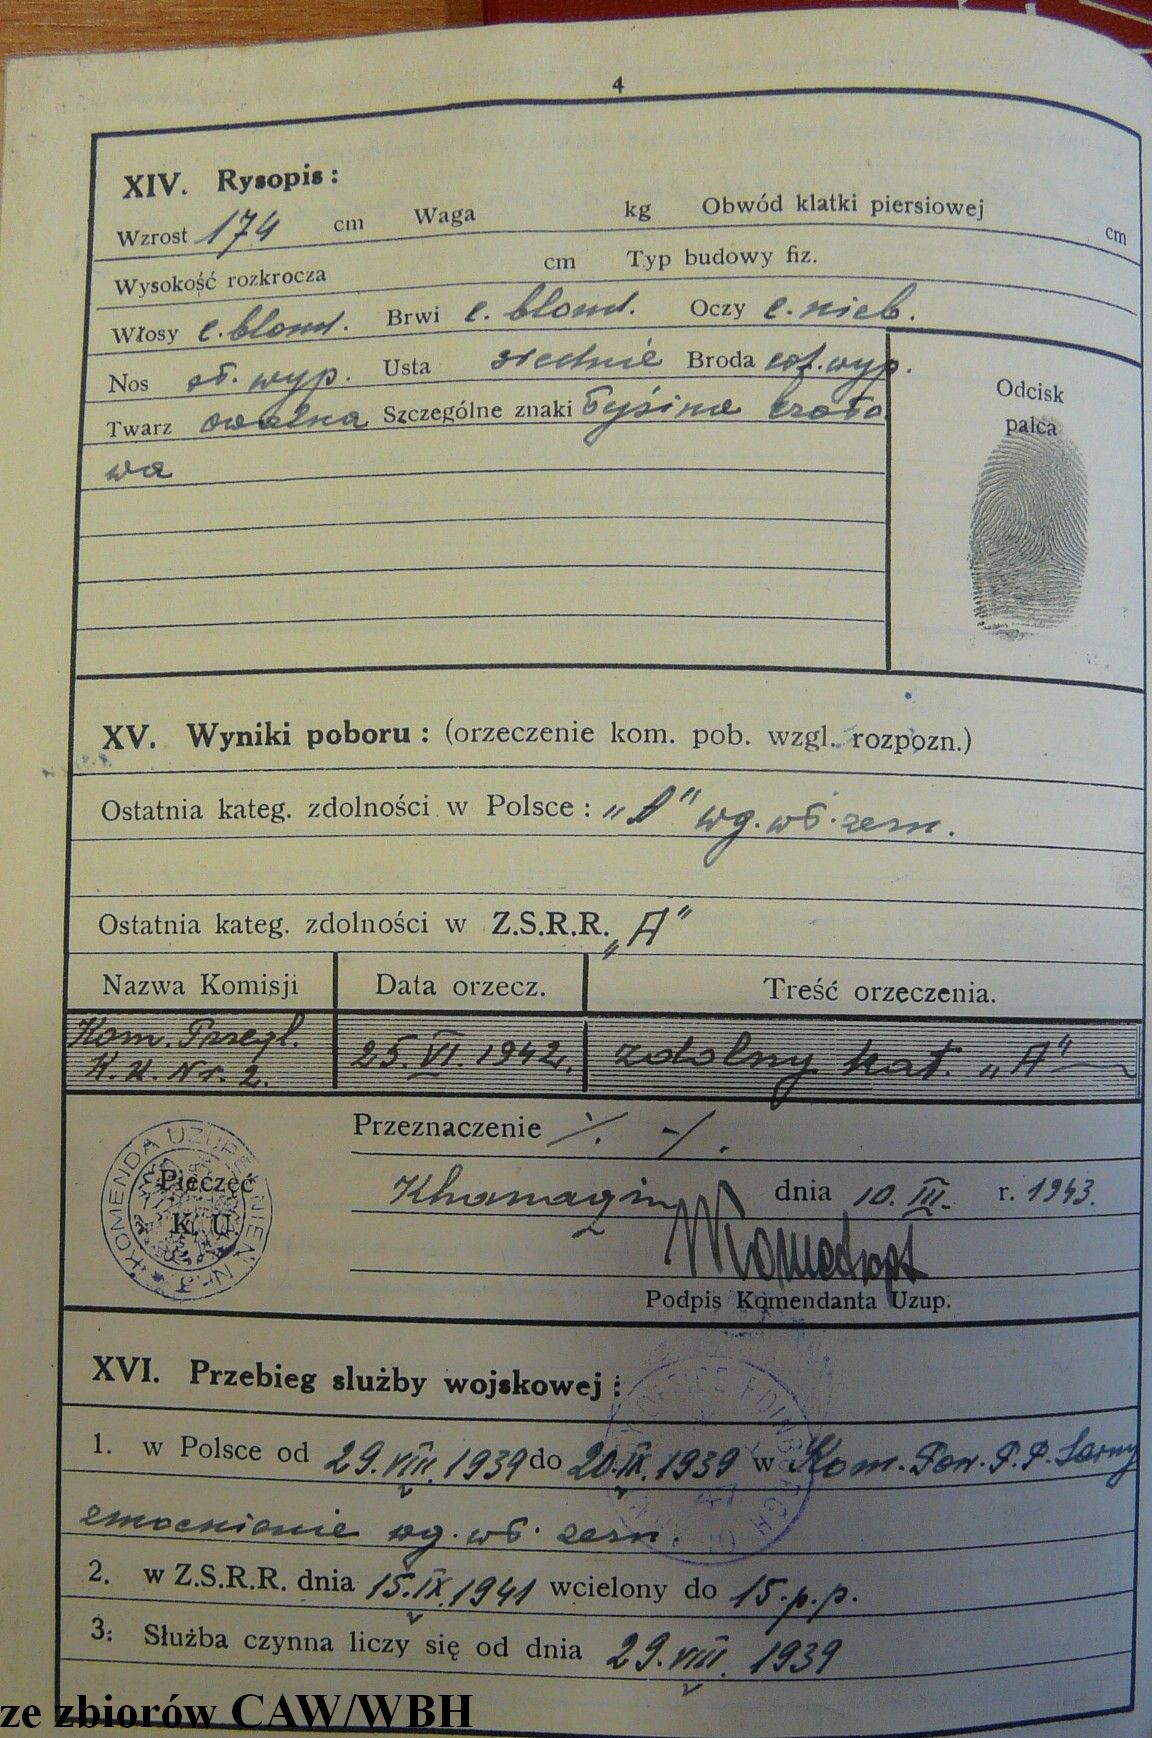 4
XIV. Rysopis:
Wzrost 174 cm Waga kg Obwód klatki piersiowej cm
Wysokość rozkrocza cm Typ budowy fiz.
Włosy c. blond. Brwi c. blond. Oczy c. nieb.
Nos śr. wyp. Usta średnie Broda wyp.
Twarz owalna Szczególne znaki łysina czoło
wa
Odcisk
palca
XV. Wyniki poboru: (orzeczenie kom. pob. wzgl. rozpozn.)
Ostatnia kateg. zdolności w Polsce: „A" wg. wł. zezn.
Ostatnia kateg. zdolności w Z.S.R.R. „A"
Nazwa Komisji Data orzecz. Treść orzeczenia.
Kom. Przegl. K.U. Nr. 2. 25. VI. 1942r. zdolny kat. „A"
Przeznaczenie ./. -/.
KOMENDA UZUPEŁNIEŃ Nr.
Pieczęć
K. U.
dnia 10. III. r. 1943.
Podpis Komendanta Uzup.
XVI. Przebieg służby wojskowej:
1. w Polsce od 29. VIII. 1939 do 20. IX. 1939 w Kom. Pow. P.P. Sarny
wg. wł. zezn.
2. w Z.S.R.R. dnia 15. IX. 1941 wcielony do 15. p.p.
3. Służba czynna liczy się od dnia 29. VIII. 1939
EDINBURGH
ze zbiorów CAW/WBH